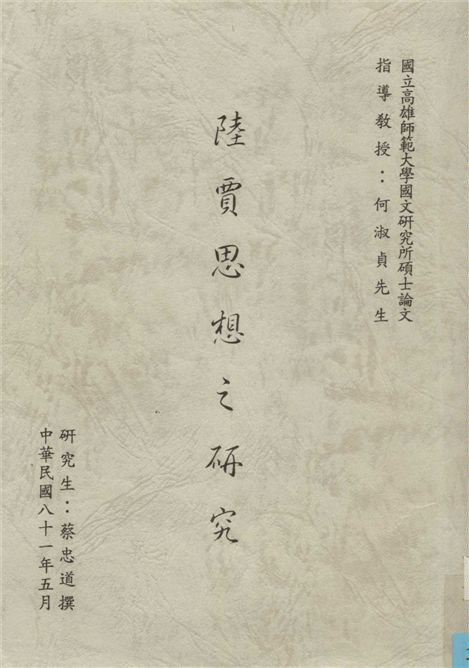 國立高雄師範大學國文研究所碩士論文
指導教授：何淑貞先生
陸賈思想之研究
研究生：蔡忠道撰
中華民國八十一年五月